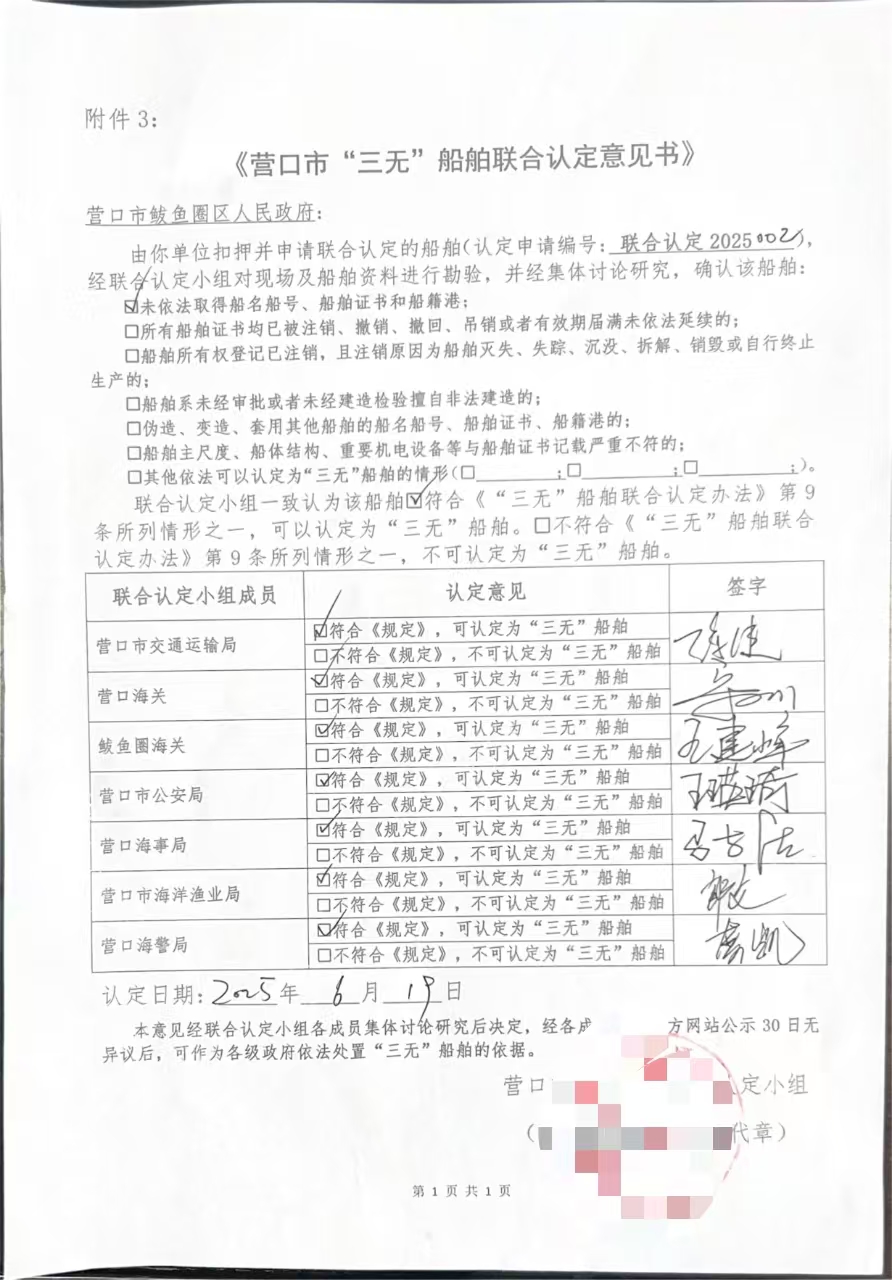 附件 3：
《营口市“三无”船舶联合认定意见书》
营口市鲅鱼圈区人民政府：
由你单位扣押并申请联合认定的船舶（认定申请编号：联合认定 2025002），
经联合认定小组对现场及船舶资料进行勘验，并经集体讨论研究，确认该船舶：
☑未依法取得船名船号、船舶证书和船籍港；
□所有船舶证书均已被注销、撤销、撤回、吊销或者有效期届满未依法延续的；
□船舶所有权登记已注销，且注销原因为船舶灭失、失踪、沉没、拆解、销毁或自行终止
生产的；
□船舶系未经审批或者未经建造检验擅自非法建造的；
□伪造、变造、套用其他船舶的船名船号、船舶证书、船籍港的；
□船舶主尺度、船体结构、重要机电设备等与船舶证书记载严重不符的；
□其他依法可以认定为“三无”船舶的情形（□________；□________；□________；）。
联合认定小组一致认为该船舶☑符合《“三无”船舶联合认定办法》第 9
条所列情形之一，可以认定为“三无”船舶。□不符合《“三无”船舶联合
认定办法》第 9 条所列情形之一，不可认定为“三无”船舶。
联合认定小组成员 认定意见 签字
营口市交通运输局 ☑符合《规定》，可认定为“三无”船舶
□不符合《规定》，不可认定为“三无”船舶
营口海关 ☑符合《规定》，可认定为“三无”船舶
□不符合《规定》，不可认定为“三无”船舶
鲅鱼圈海关 ☑符合《规定》，可认定为“三无”船舶 王建峰
□不符合《规定》，不可认定为“三无”船舶
营口市公安局 ☑符合《规定》，可认定为“三无”船舶
□不符合《规定》，不可认定为“三无”船舶
营口海事局 ☑符合《规定》，可认定为“三无”船舶
□不符合《规定》，不可认定为“三无”船舶
营口市海洋渔业局 ☑符合《规定》，可认定为“三无”船舶
□不符合《规定》，不可认定为“三无”船舶
营口海警局 ☑符合《规定》，可认定为“三无”船舶
□不符合《规定》，不可认定为“三无”船舶
认定日期：2025年 6 月 19 日
本意见经联合认定小组各成员集体讨论研究后决定，经各成 方网站公示 30 日无
异议后，可作为各级政府依法处置“三无”船舶的依据。
营口 认定小组
（ 代章）
第 1 页 共 1 页